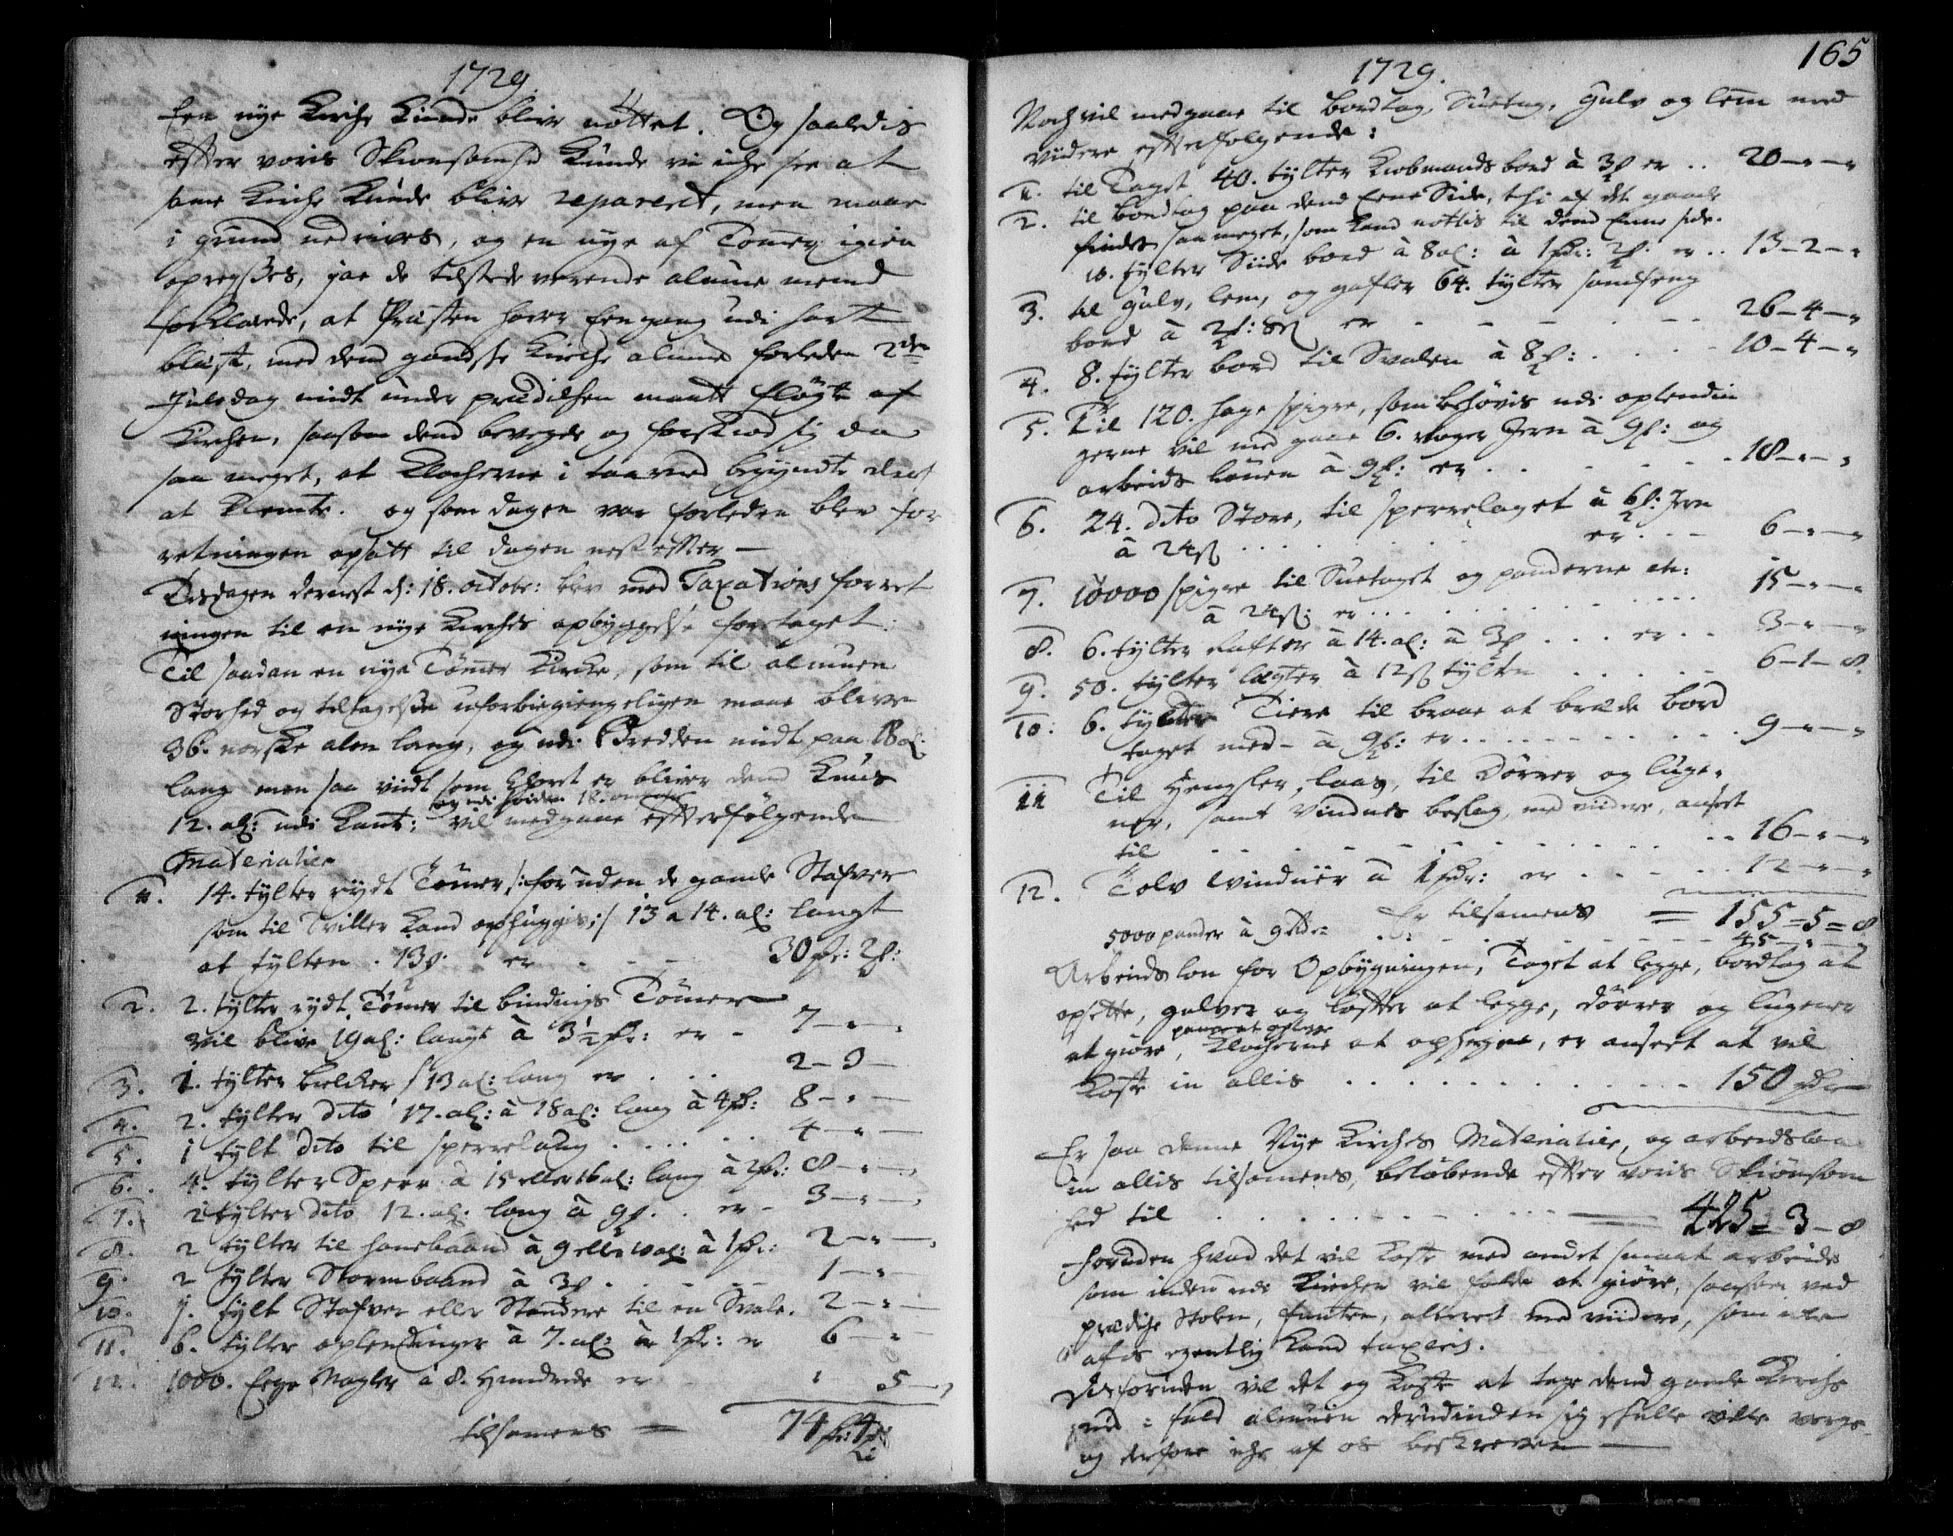 1729.
Een nye Kirche Kunde blive nøttet. Og saaledis
effter voris Skiønsomhed Kunde vi iche see at
samme Kirche Kunde blive repareret, men maae
i grund nedrives, og en nye af Tømer igien
opregsses, jae de tilstede verende almue mend
forklarede, at Præsten haver een gang udi hart
blæst, med dend gandsche Kirche almue forleden 2den
Juledag midt under prædichen maatt fløgte af
Kirchen, saasom dend bevegede og forskiød sig da
saa meget, at Klocherne i taarned begyndte
at Kemte. og som dagen var forleden blev for
retningen opsatt til dagen nest effter —
Tisdagen dernest d: 18. octobr: blev med Taxations forret
ningen til en nye Kirches opbyggelse foretaget:
Til saadan en nye Tømer Kirche, som til almuen
Storhed og tiltagelse uforbigiengeligen maae blive
36. norske alen lang, og udi Bredden midt paa 18 al:
lang men saa viidt som Choret er bliver dend Kuns
og udi høiden 18.
12. al: udi Kant: vil medgaae effterfølgende
Materialier
1. 14. tylter rydt Tømer /: foruden de gamle Stafver
som til Sviller Kand ophuggis :/ 13 a 14. al: langt
at tylten . 13 . er - - 30 : 2 :
2. 2. tylter rydt Tømer til bindings Tømer
vil blive 19 al: langt à 3½ : er - 7 - " - "
3. 1. tylter bielcker / 13 al: lang er . . . 2 - 3 -
4. 2. tylter dito 17. al: à 18 al: lang à 4 : 8 - " -
5. 1 tylt dito til sperrelaug . . . . . 4 - " -
6. 4. tylter Sperr à 15 eller 16 al: lang à 2 : 8 - " - "
7. 2 tylter dito 12. al: lang à 9 . . er - 3 - " - "
8. 2 tylter til hanebaand à 9 eller 10 al: à 1 : 2 - " - "
9. 2 tylter Stormbaand à 3 . . . - - 1 - " -
10. 1. tylt Stafver eller Standere til en Svale. 2 - " -
11. 6. tylter oplendinger à 7. al: à 1 : er 6 - "
12. 1000. Eege Nagler à 8. Hundrede er - " 5 - "
tilsamens = 74 : 4

165
1729.
Noch vil medgaae til Bordtag, Suetag, Gulv og lem med
viidere effterfølgende:
1. til Taget 40. tylter Kiøbmands bord à 3 er . . 20 - " - "
2. til bordtag paa dend Eene Side, thi af det gamle
findes saa meget, som kand nøttis til dend Eene side.
10. tylter Side bord à 8 al: à 1 : 2 . er . . 13 - 2 - "
3. til gulv, lem, og gafler 64. tylter
bord à 2 : 8 er - - - - - - 26 - 4 - "
4. 8. tylter bord til Svalen à 8 : . . . . 10 - 4 - "
5. Til 120. hage spigre, som behøvis udi oplendin
gerne vil med gaae 6. voger Jern à 9 : og
arbeids lønen à 9 : er . . . . . . . 18 - " - "
6. 24. dito Store, til sperrelaget à 6 : Jern
à 24 . . . . . . . er . . . - 6 - " - "
7. 10000 spigre til Suetaget og panderne
à 24 : er . . . . . . . . . . 15 - " - "
8. 6. tylter rafter à 14. al: à 3 . . . er . . 3 - " - "
9. 50. tylter lægter à 12 tylten . . . . . 6 - 1 - 8
10: 6. tynder Tiere til braae at bræde bord
taget med - à 9 : er . . . . . . . . . 9 - " - "
11 Til Hengsler, laas, til Dørrer og luge-
ner, samt Vindues beslag, med viidere, anseet
til - - - - - - - - - - . . 16 - " - "
12. Tolv vinduer à 1 : er - - - - - 12 - " - "
Er tilsamens = 155 - 5 - 8
5000 pander à 9 - - - - - - - - 45 - " - "
Arbeids løn for Opbygningen, Taget at legge, bordtag at
opsette, gulver og loffter at legge, dørrer og lugener
at giøre, Klocherne at ophenge, er anseet at vil
Koste in allis . . . . . . . . . . . - 150
Er saa denne Nye Kirches Materialie, og arbeidsløn
in allis tilsamens, beløbende effter voris Skiønsom
hed til . . . . . - - - - 425 - 3 - 8
foruden hvad det vil koste med andet smaat arbeide
som inden udi Kirchen vil falde at giøre, saasom ved
prædiche Stolen, funten, alteret med viidere, som
af os egentlig Kand taxeris.
Desforuden vil det og Koste at tage dend gamle Kirche
ned = fald almuen derudinden sig skulle ville verge
og derfore iche af os beskreven —